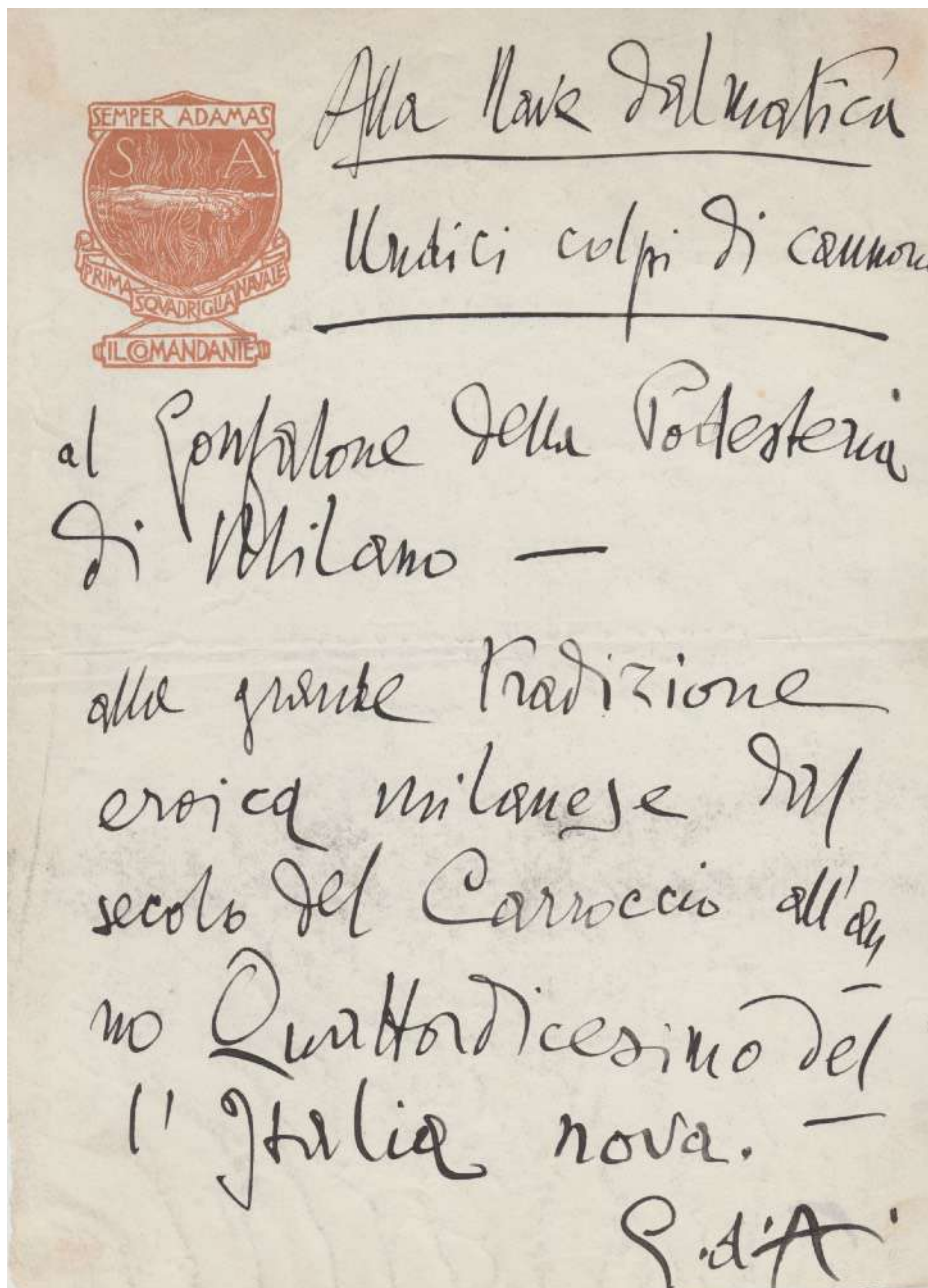 SEMPER ADAMAS
S A
PRIMA SQVADRIGLIA NAVALE
IL COMANDANTE
Alla Nave dalmatica
Undici colpi di cannone
al Gonfalone della Podesteria
di Milano —
alla grande tradizione
eroica milanese dal
secolo del Carroccio all'an
no Quattordicesimo del
l'Italia nova. —
G. d'A.